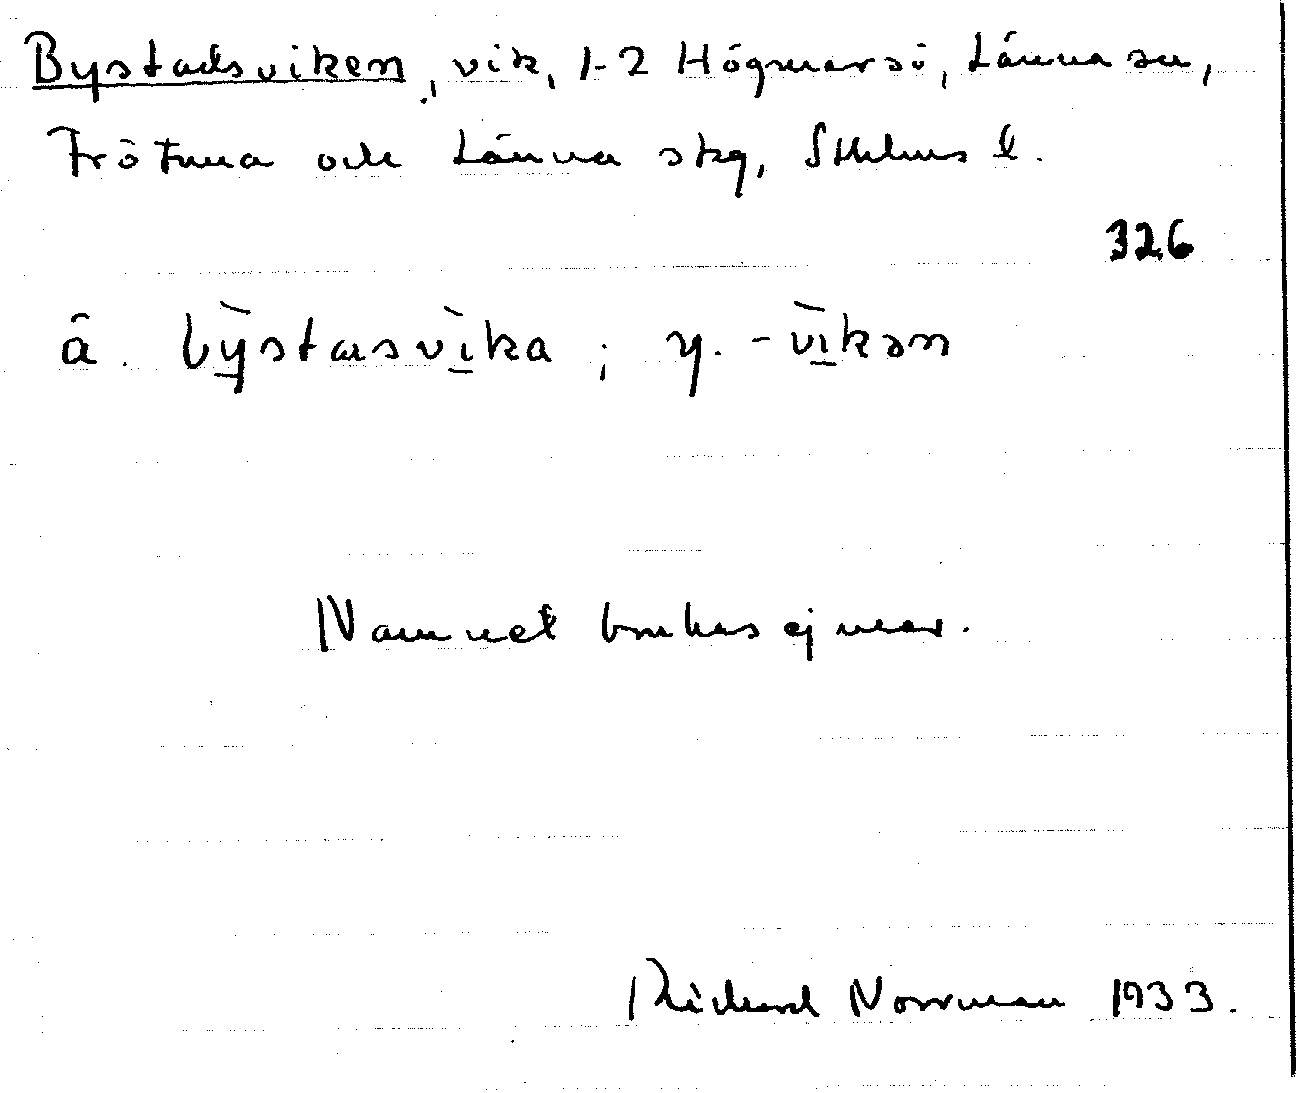 Bystadsviken, vik, 1-2 Högmarsö, Länna sn,
Frötuna och Länna skg, Sthlms l.
326
ä. bỳ̱stasvì̱ka ; y. -vì̱kən
Namnet brukas ej mer.
Richard Norrman 1933.